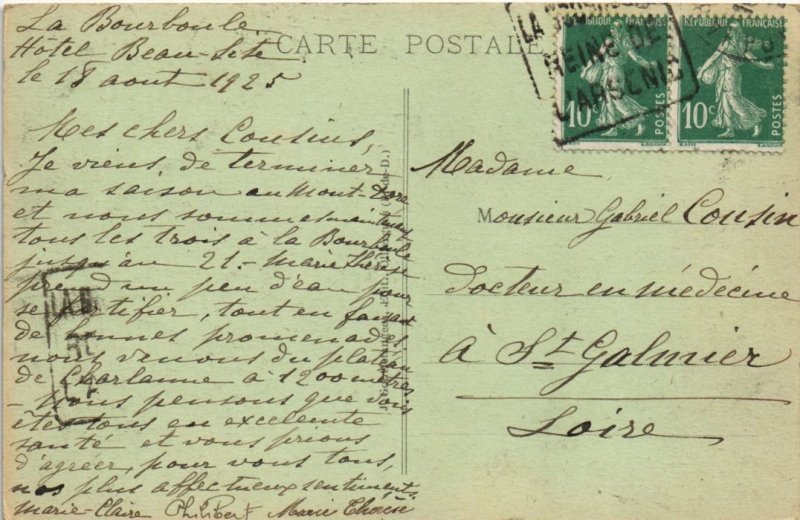 La Bourboule
Hôtel Beau-Site
le 18 aout 1925
CARTE POSTALE
Mes chers Cousins,
Je viens de terminer
ma saison au Mont-Dore
et nous sommes maintenant
tous les trois à la Bourboule
jusqu'au 21. - Marie Thérèse
prend un peu d'eau pour
se fortifier, tout en faisant
de bonnes promenades
nous venons du plateau
de Charlanne à 1200 mètres
- Nous pensons que vous
êtes tous en excellente
santé et vous prions
d'agréer, pour vous tous,
nos plus affectueux sentiments.
Marie-Claire Philibert Marie Thérèse
LA BOURBOULE
REINE DE
L'ARSENIC
RÉPUBLIQUE FRANÇAISE
10c
POSTES
RÉPUBLIQUE FRANÇAISE
10c
POSTES
Madame
Monsieur Gabriel Cousin
Docteur en médecine
à St. Galmier
Loire